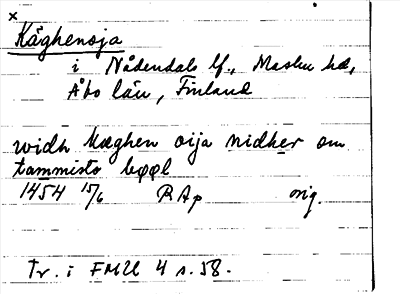 ×
Käghenoja
i Nådendals lf., Masku hd,
Åbo län, Finland
widh kæghen oija nidher om
tammisto bøøl
1454 15/6 RAp orig.
Tr. i FMU 4 s. 58.